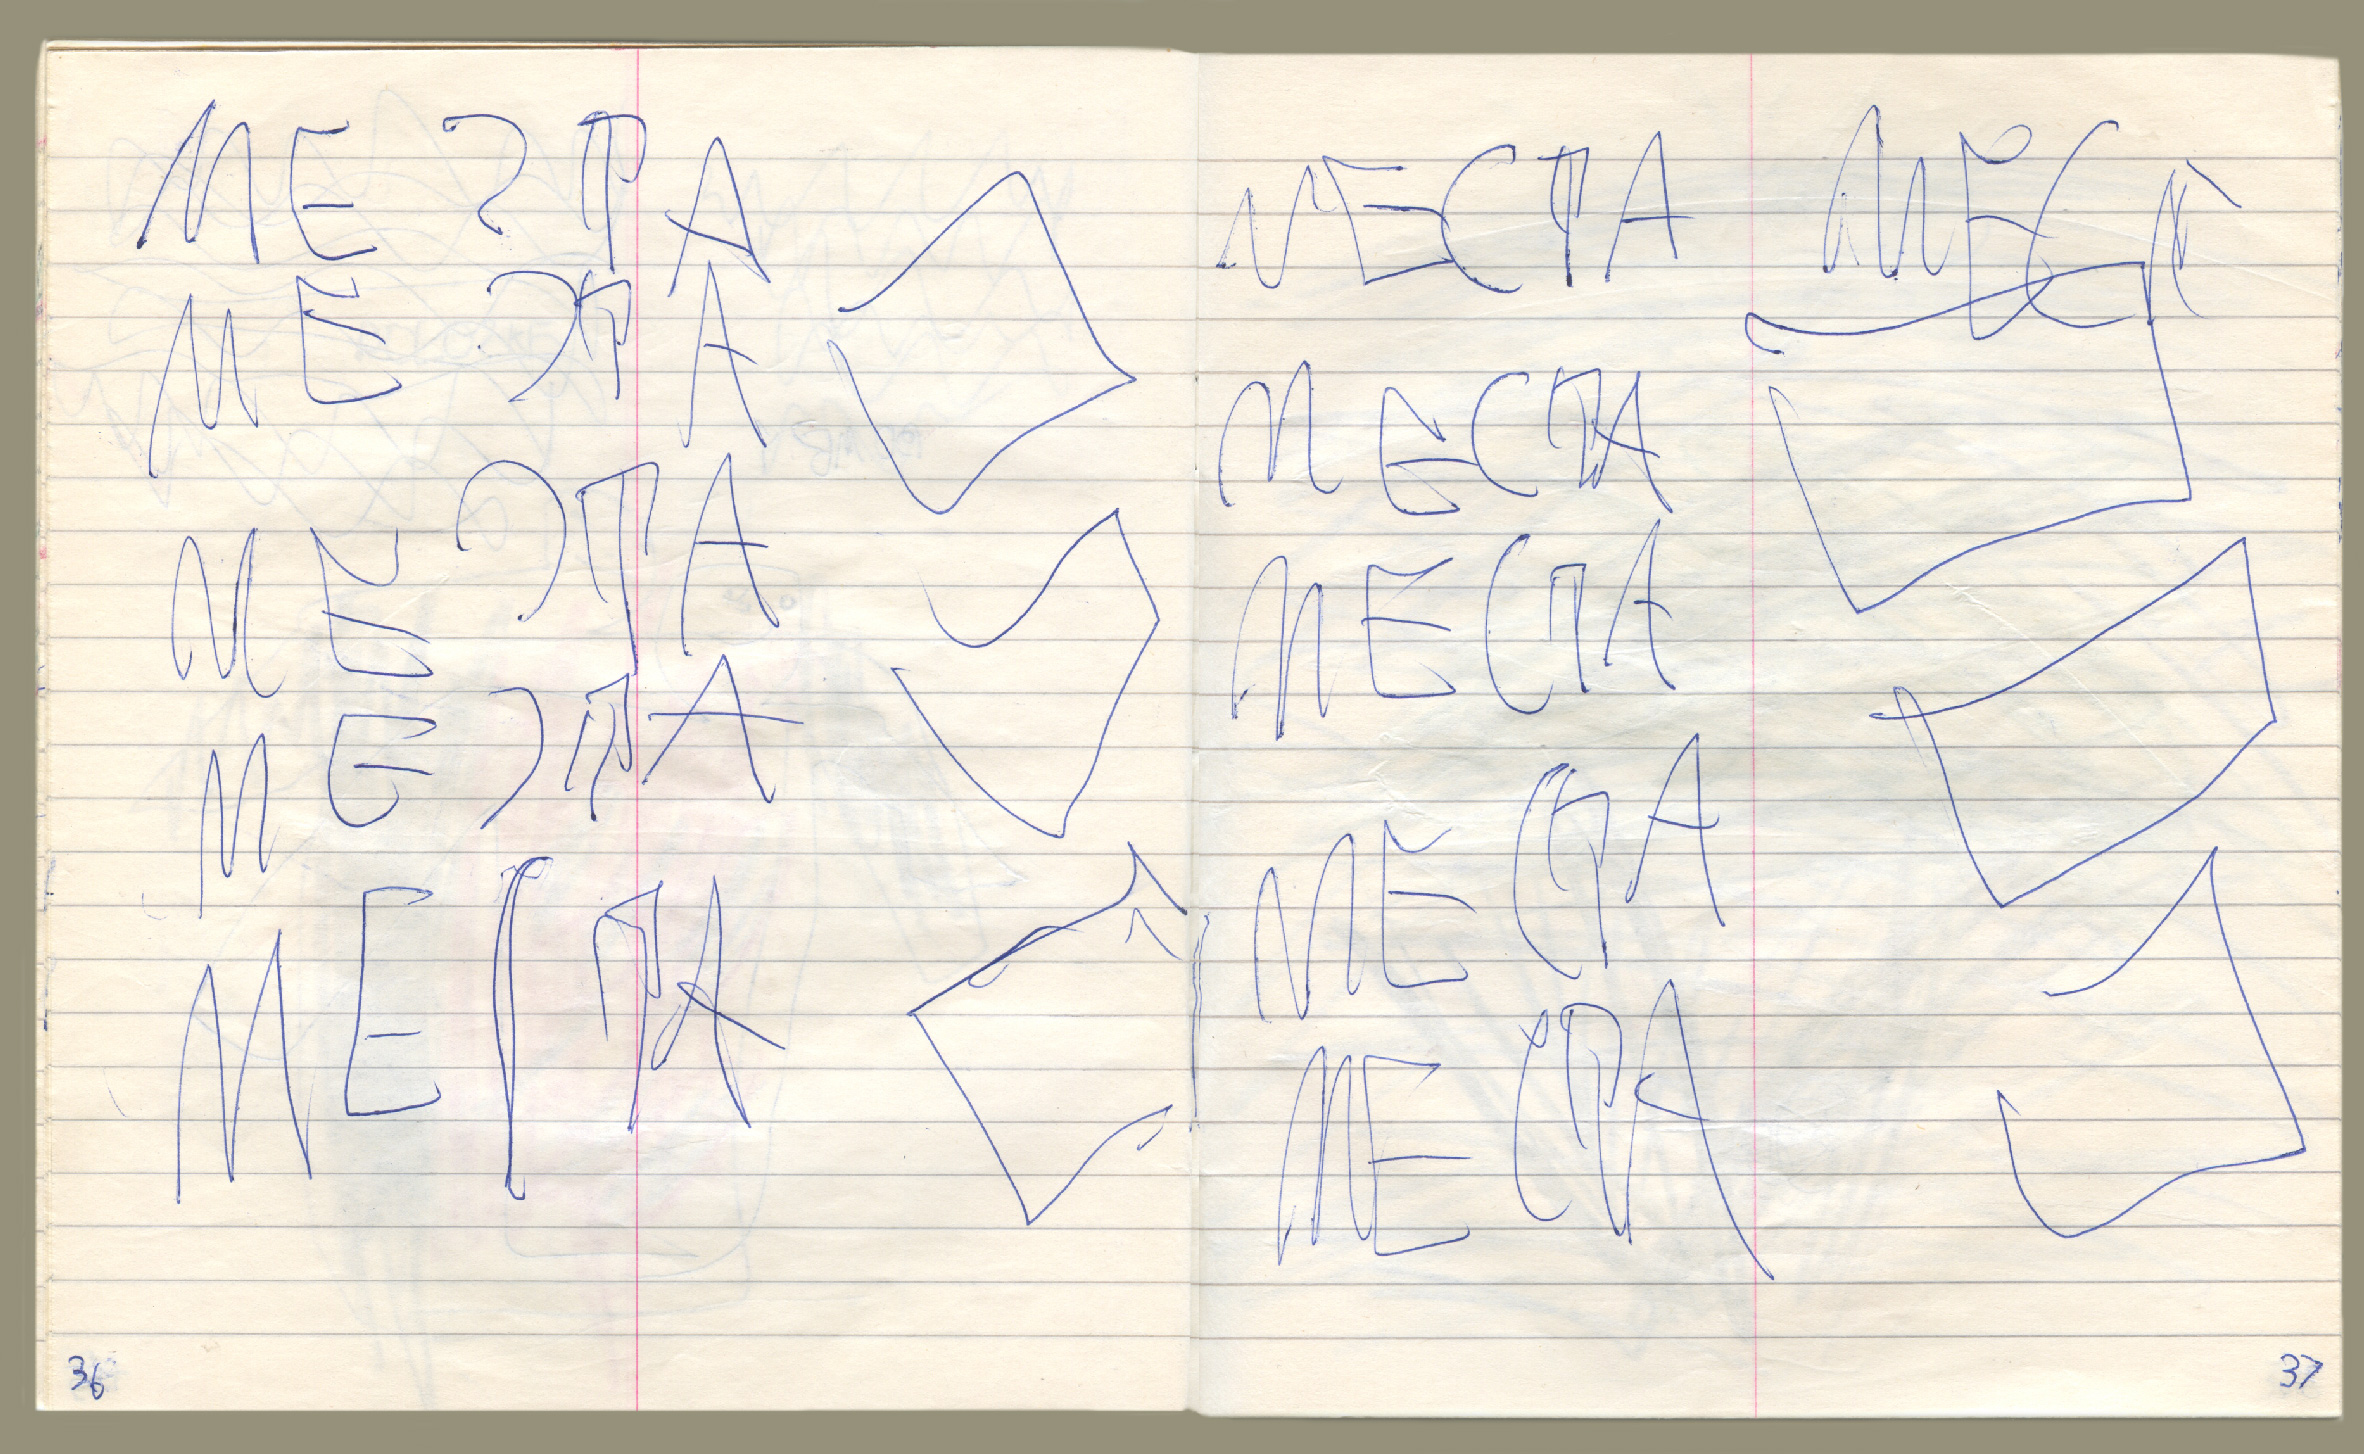 МЕСТА
МЕСТА
МЕСТА
МЕСТА
МЕСТА
36
МЕСТА МЕС
МЕСТА
МЕСТА
МЕСТА
МЕСТА
37